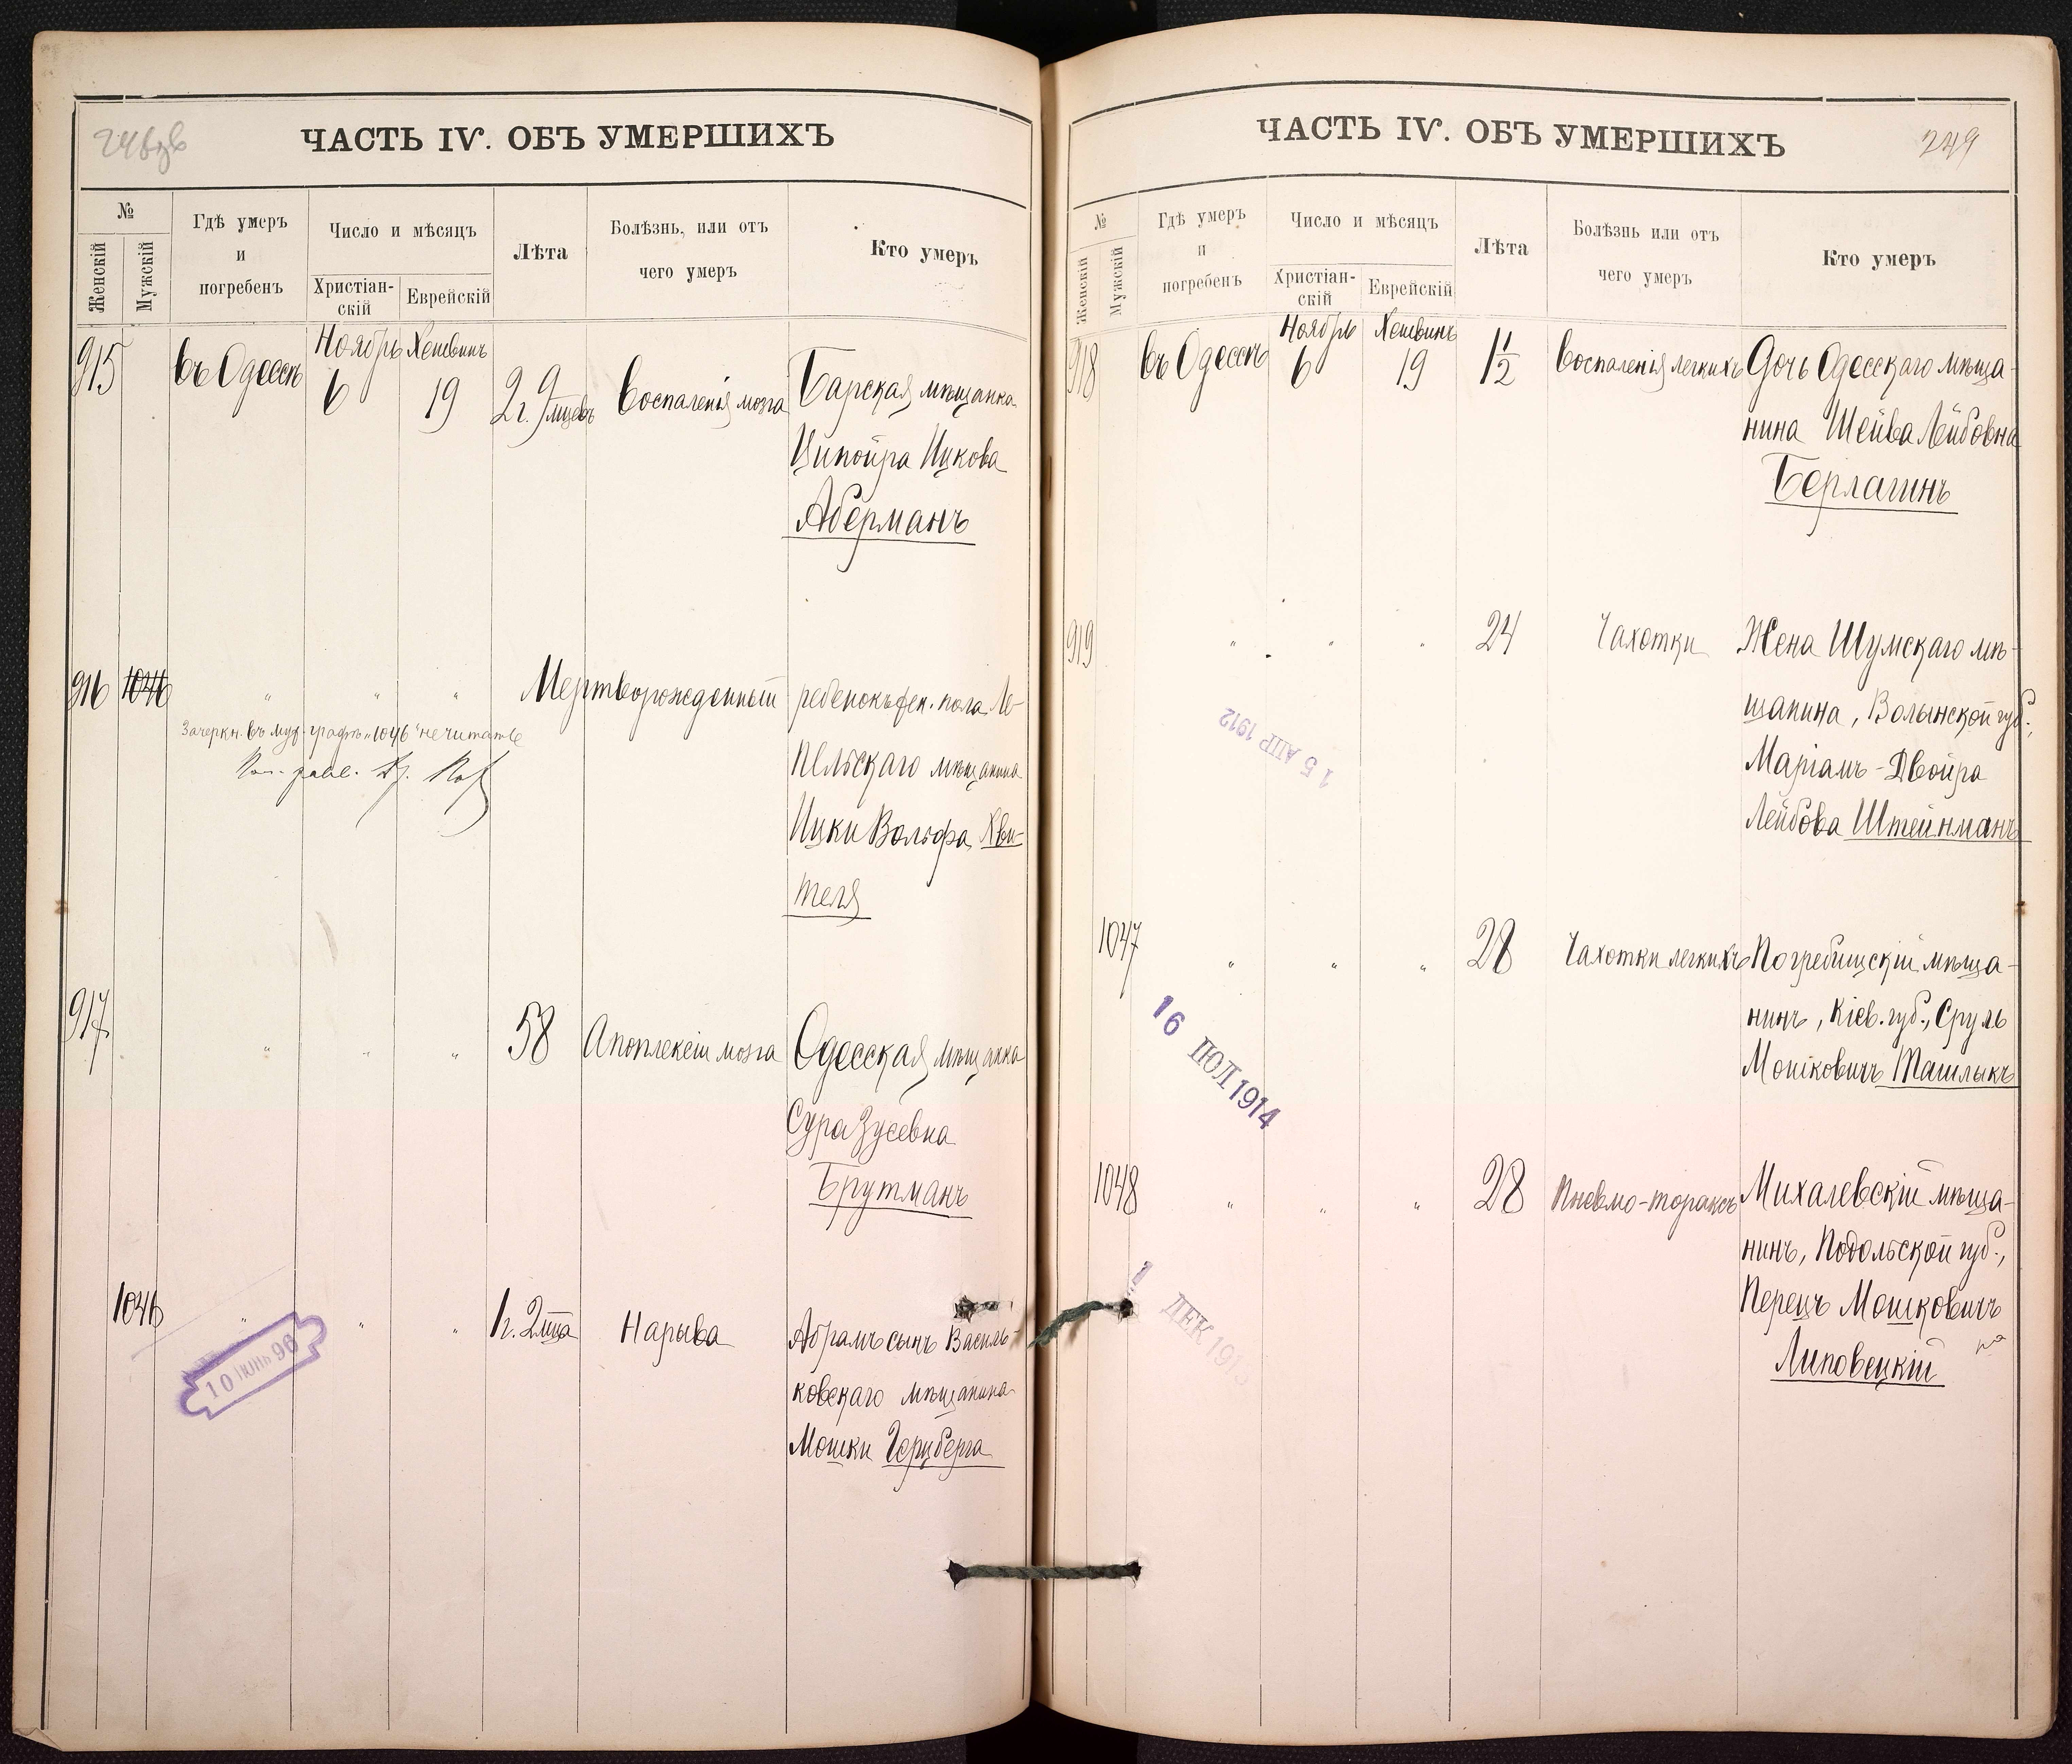 ЧАСТЬ IV. ОБЪ УМЕРШИХЪ
№
Женскій
Мужскій
Гдѣ умеръ
и
погребенъ
Число и мѣсяцъ
Христіан-
скій
Еврейскій
Лѣта
Болѣзнь, или отъ
чего умеръ
Кто умеръ
915
въ Одессѣ
Ноябрь
6
Хешвинъ
19
2 г. 9 мцевъ
Воспаленія мозга
Барская мѣщанка
Ципойра Ицкова
Аберманъ
916 1046 " " "
Мертворожденный ребенокъ жен. пола Ле-
пельскаго мѣщанина
Ицки Вольфа Хви-
теля
Зачеркн. въ муж. графѣ „1046" не читать
917 " " " 58 Апоплексіи мозга Одесская мѣщанка
Сура Зусевна
Брутманъ
1046 " " " 1 г. 2 мца Нарыва Абрамъ сынъ Василь-
ковскаго мѣщанина
Мошки Герцберга
10 ІЮНЬ 96
ЧАСТЬ IV. ОБЪ УМЕРШИХЪ
249
№
Женскій
Мужскій
Гдѣ умеръ
и
погребенъ
Число и мѣсяцъ
Христіан-
скій
Еврейскій
Лѣта
Болѣзнь или отъ
чего умеръ
Кто умеръ
918
въ Одессѣ
Ноябрь
6
Хешвинъ
19
1 1/2
Воспаленія легкихъ
Дочь Одесскаго мѣща-
нина Шейва Лейбовна
Берлагинъ
919 " " " 24 Чахотки Жена Шумскаго мѣ-
щанина, Волынской губ.,
Маріамъ-Двойра
Лейбова Штейнманъ
15 АПР 1912
1047 " " " 28 Чахотки легкихъ Погребищскій мѣща-
нинъ, Кіев. губ., Сруль
Мошковичъ Ташлыкъ
16 ІЮЛ 1914
1048 " " " 28 Пневмо-тораксъ Михалевскій мѣща-
нинъ, Подольской губ.,
Перецъ Мошковичъ
Липовецкій
1 ДЕК 191